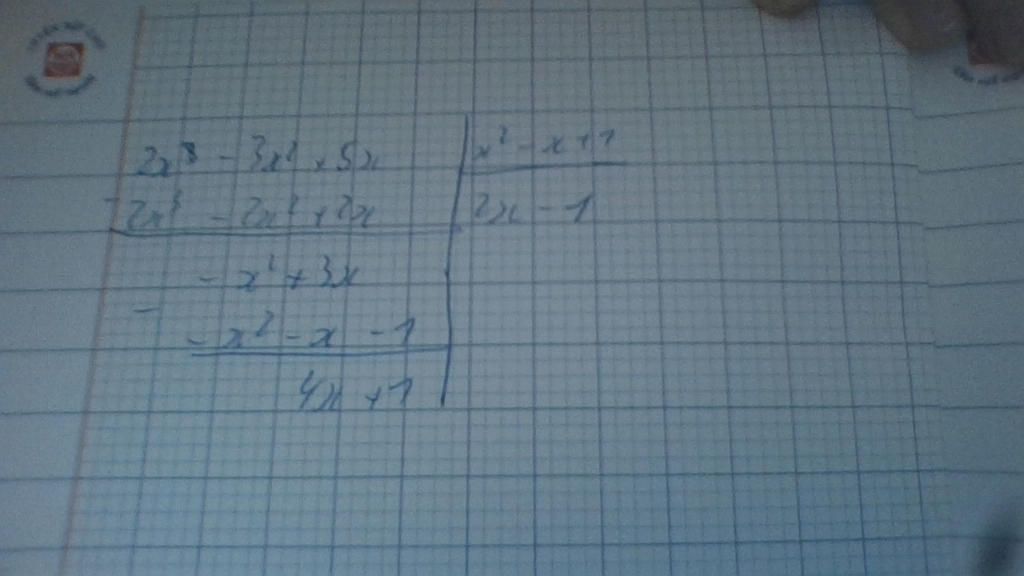 2x³ - 3x² + 5x | x² - x + 1
- 2x³ - 2x² + 2x | 2x - 1
- x² + 3x
- - x² - x - 1
4x + 1